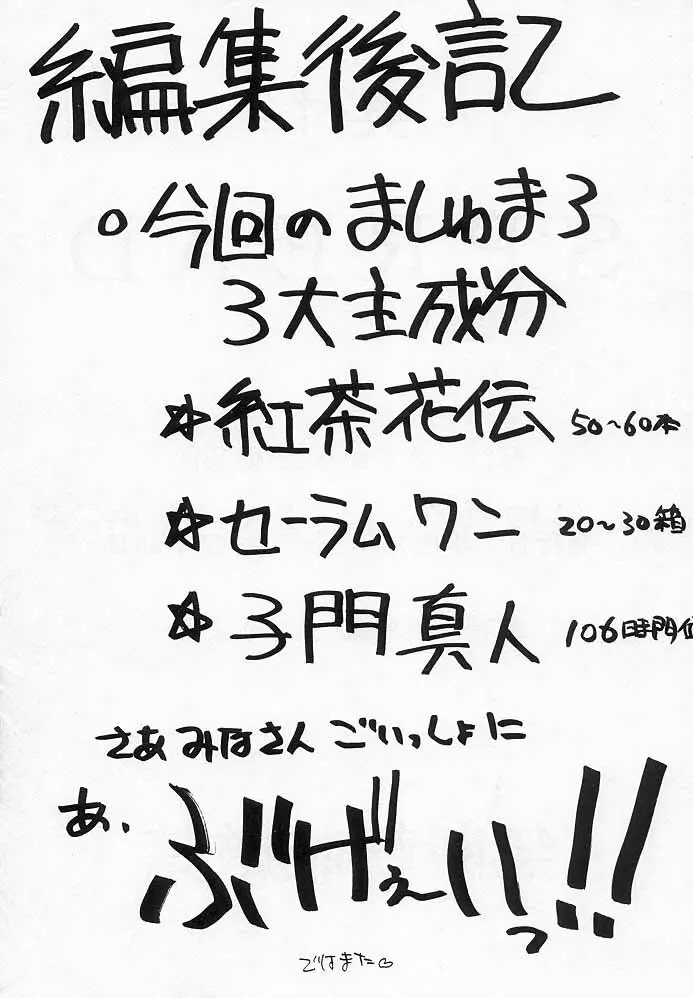 編集後記
○今回のましゅまろ
3大主成分
☆紅茶花伝 50〜60本
☆セーラムワン 20〜30箱
☆子門真人 106時間位
さあみなさんごいっしょに
あ、ぶげぇいっ!!
ではまた♡